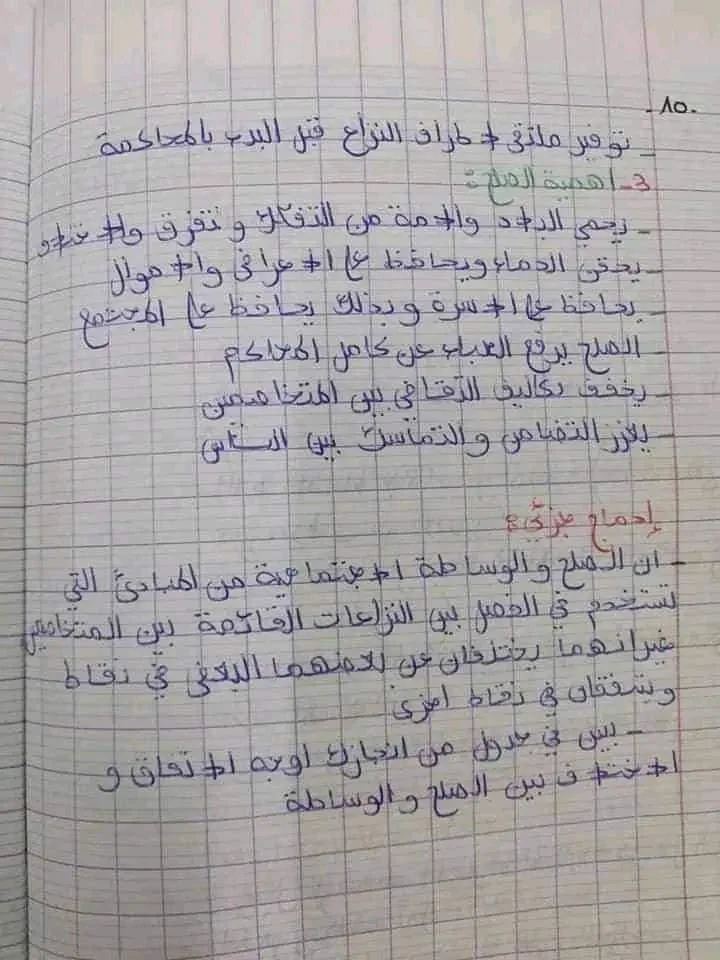 10.
- توفير ملتقى لأطراف النزاع قبل البدء بالمحاكمة
3- اهمية الصلح:
- يحمي البلاد والأمة من التفكك و تفرق والأ
- يحقن الدماء ويحافظ على الأعراض والأموال
- يحافظ على الأسرة وبذلك يحافظ على المجتمع
- الصلح يرفع العباء عن كاهل المحاكم
- يخفف تكاليف التقاضي بين المتخاصمين
- يعزز التضامن والتماسك بين الناس
إدماج جزئي:
- ان الصلح والوساطة الاجتماعية من المبادئ التي
تستخدم في الفصل بين النزاعات القائمة بين المتخاصمين
غير انهما يختلفان عن بعضهما البعض في نقاط
ويتفقان في نقاط اخرى
- بين في جدول من انجازك اوجه الاتفاق و
الاختلاف بين الصلح والوساطة